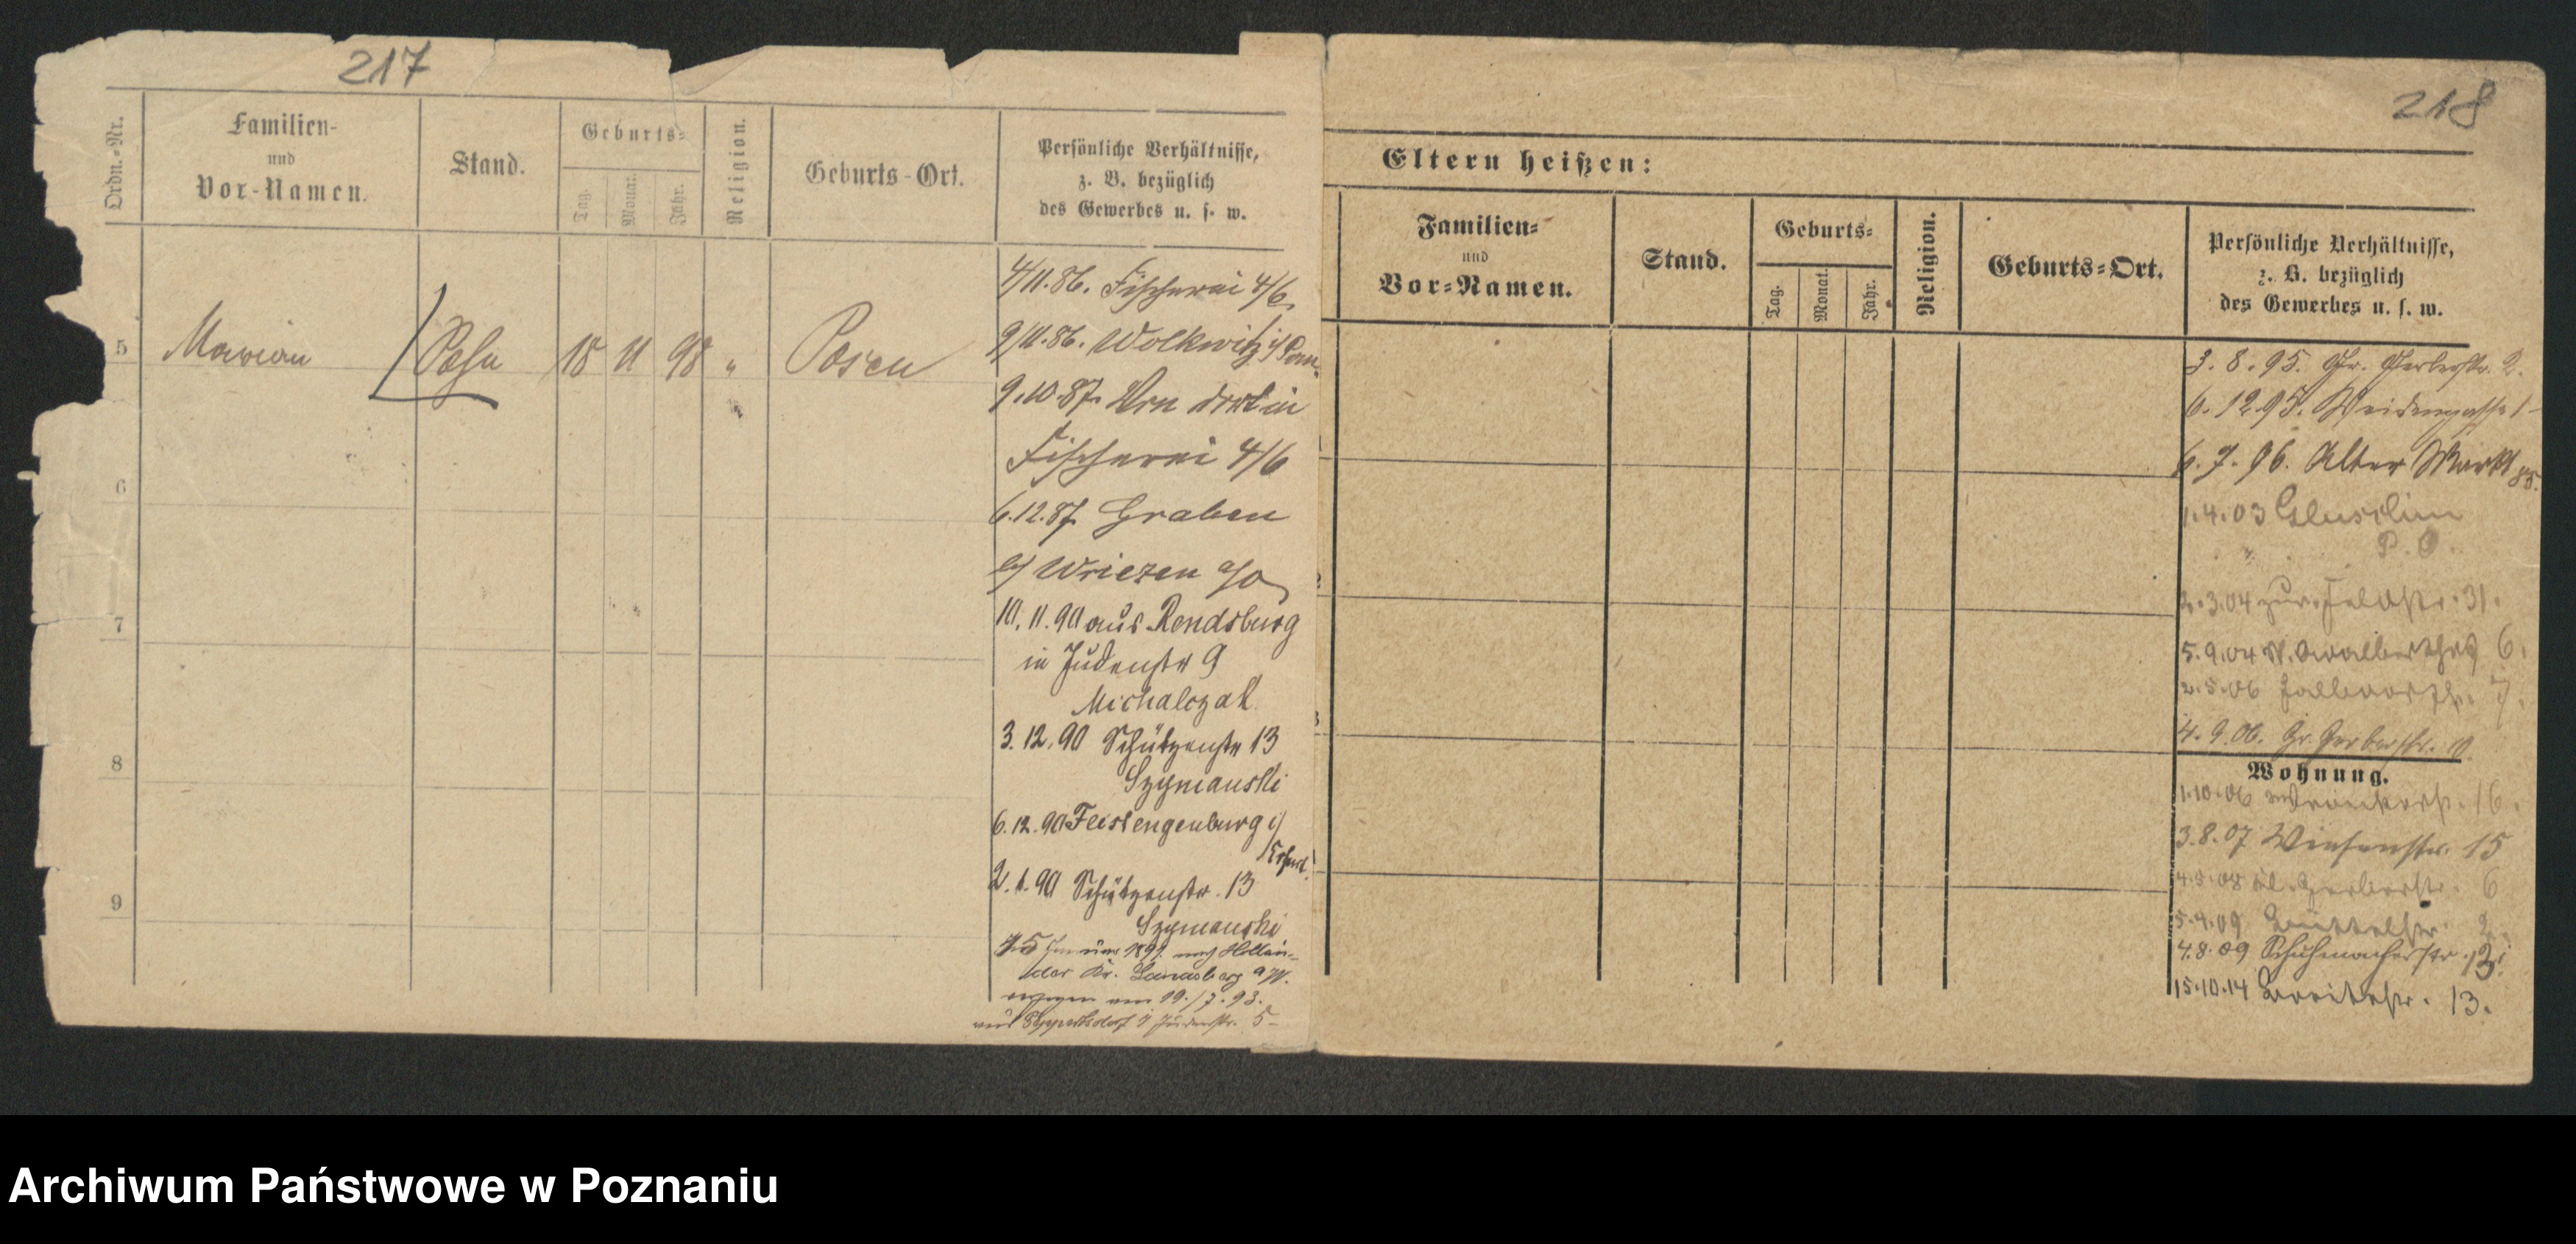 217
Ordn.-Nr.
Familien-
und
Vor-Namen.
Stand.
Geburts-
Tag.
Monat.
Jahr.
Religion.
Geburts-Ort.
Persönliche Verhältnisse,
z. B. bezüglich
des Gewerbes u. s. w.
5 Marian Sohn 18 11 98 " Posen
6
7
8
9
4/11.86. Fischerei 4/6.
9/11.86. Wolkwitz i/Pom.
9.10.87. dort in
Fischerei 4/6
6.12.87. Graben
b/ Wriezen a/O
10.11.90 aus Rendsburg
in Judenstr 9
Michalczak
3.12.90 Schützenstr 13
Szymanski
6.12.90 Feistengenburg i/
Erfurt
2.1.90 Schützenstr. 13
Szymanski
15 Januar 1891 nach Hollän-
der Kr. Landsberg a/W.
am 19./7.93.
aus Judenstr. 5-
218
Eltern heißen:
Familien-
und
Vor-Namen.
Stand.
Geburts-
Tag.
Monat.
Jahr.
Religion.
Geburts-Ort.
Persönliche Verhältnisse,
z. B. bezüglich
des Gewerbes u. s. w.
3.8.95. Gr. Gerberstr. 2.
6.12.95. Weidengasse 1-
6.7.96. Alter Markt 85.
1.4.03
P. O.
2.3.04 zur. Feldstr. 31.
5.9.04 St. Adalbertstr 6.
2.5.06 7.
4.9.06. Gr. Gerberstr. 10
Wohnung.
1.10.06 Wronkerstr. 16.
3.8.07 Wiesenstr. 15
4.5.08 Kl. Gerberstr. 6
5.4.09 Büttelstr. 2.
4.8.09 Schuhmacherstr. 13.
15.10.14 Breitestr. 13.
Archiwum Państwowe w Poznaniu